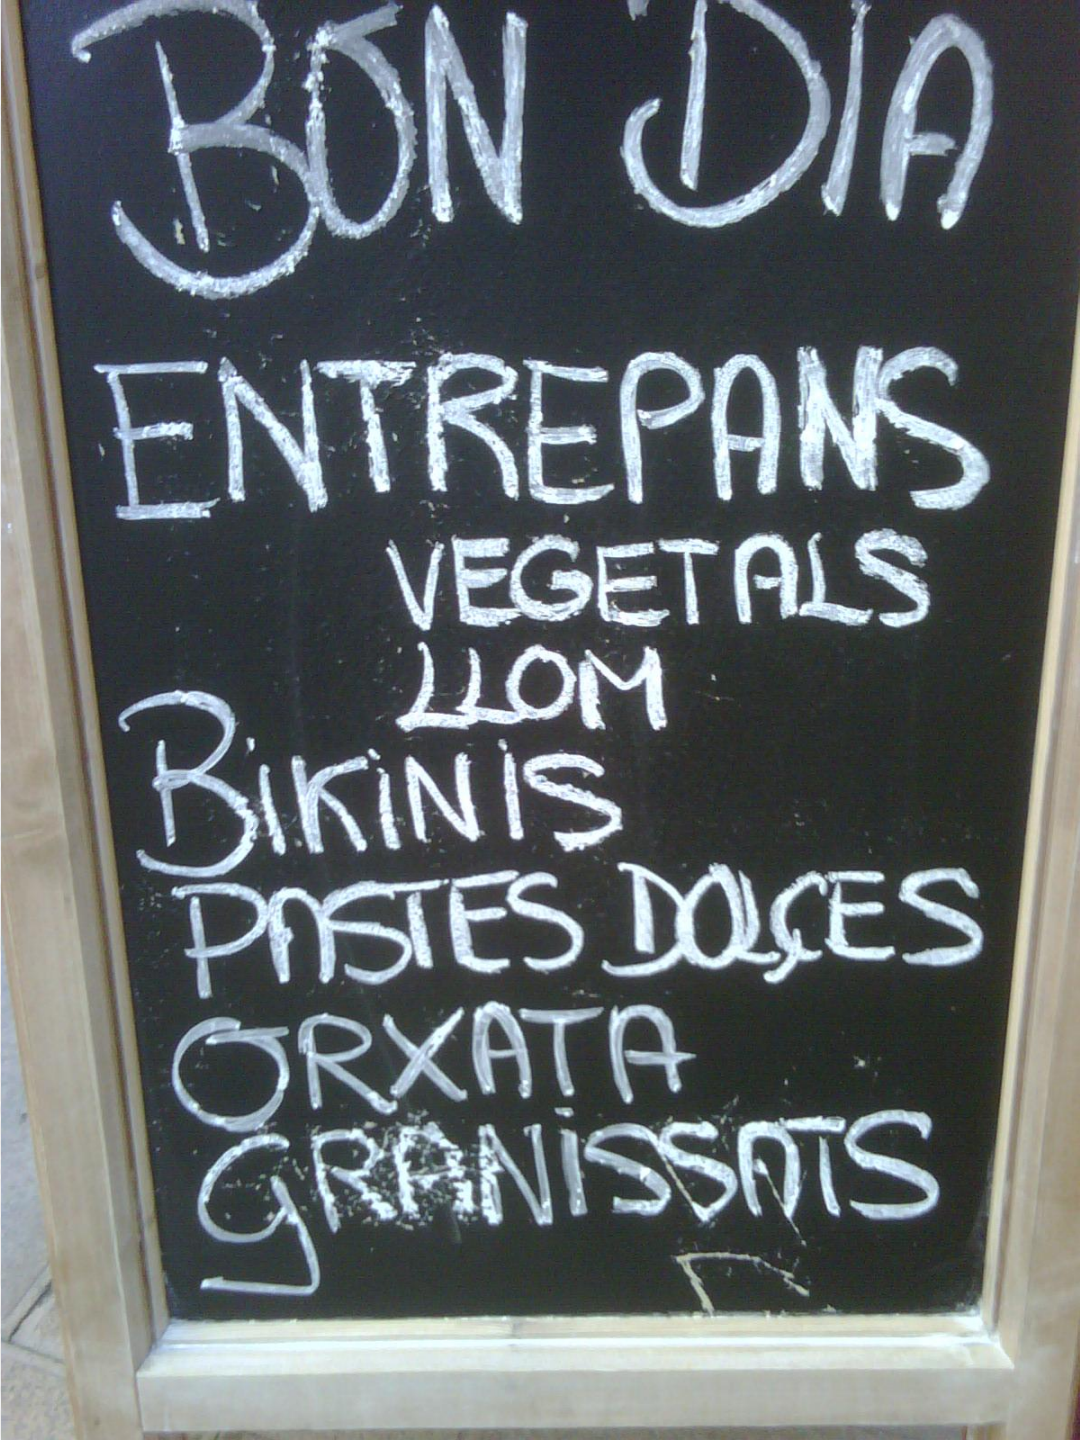 BON DIA
ENTREPANS
VEGETALS
LLOM
BiKiNiS
PASTES DOLÇES
ORXATA
GRANiSSATS